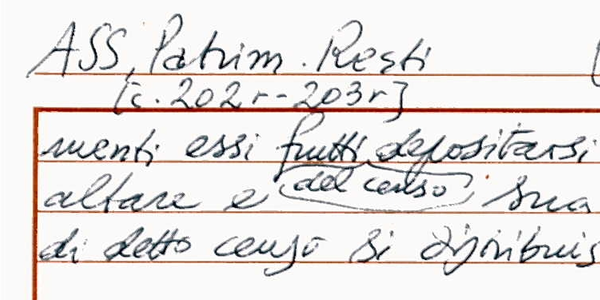 ASS, Patrim. Resti
[c. 202r-203r]
menti essi frutti depositarsi
altare e (del censo) sua
di detto censo si distribuis